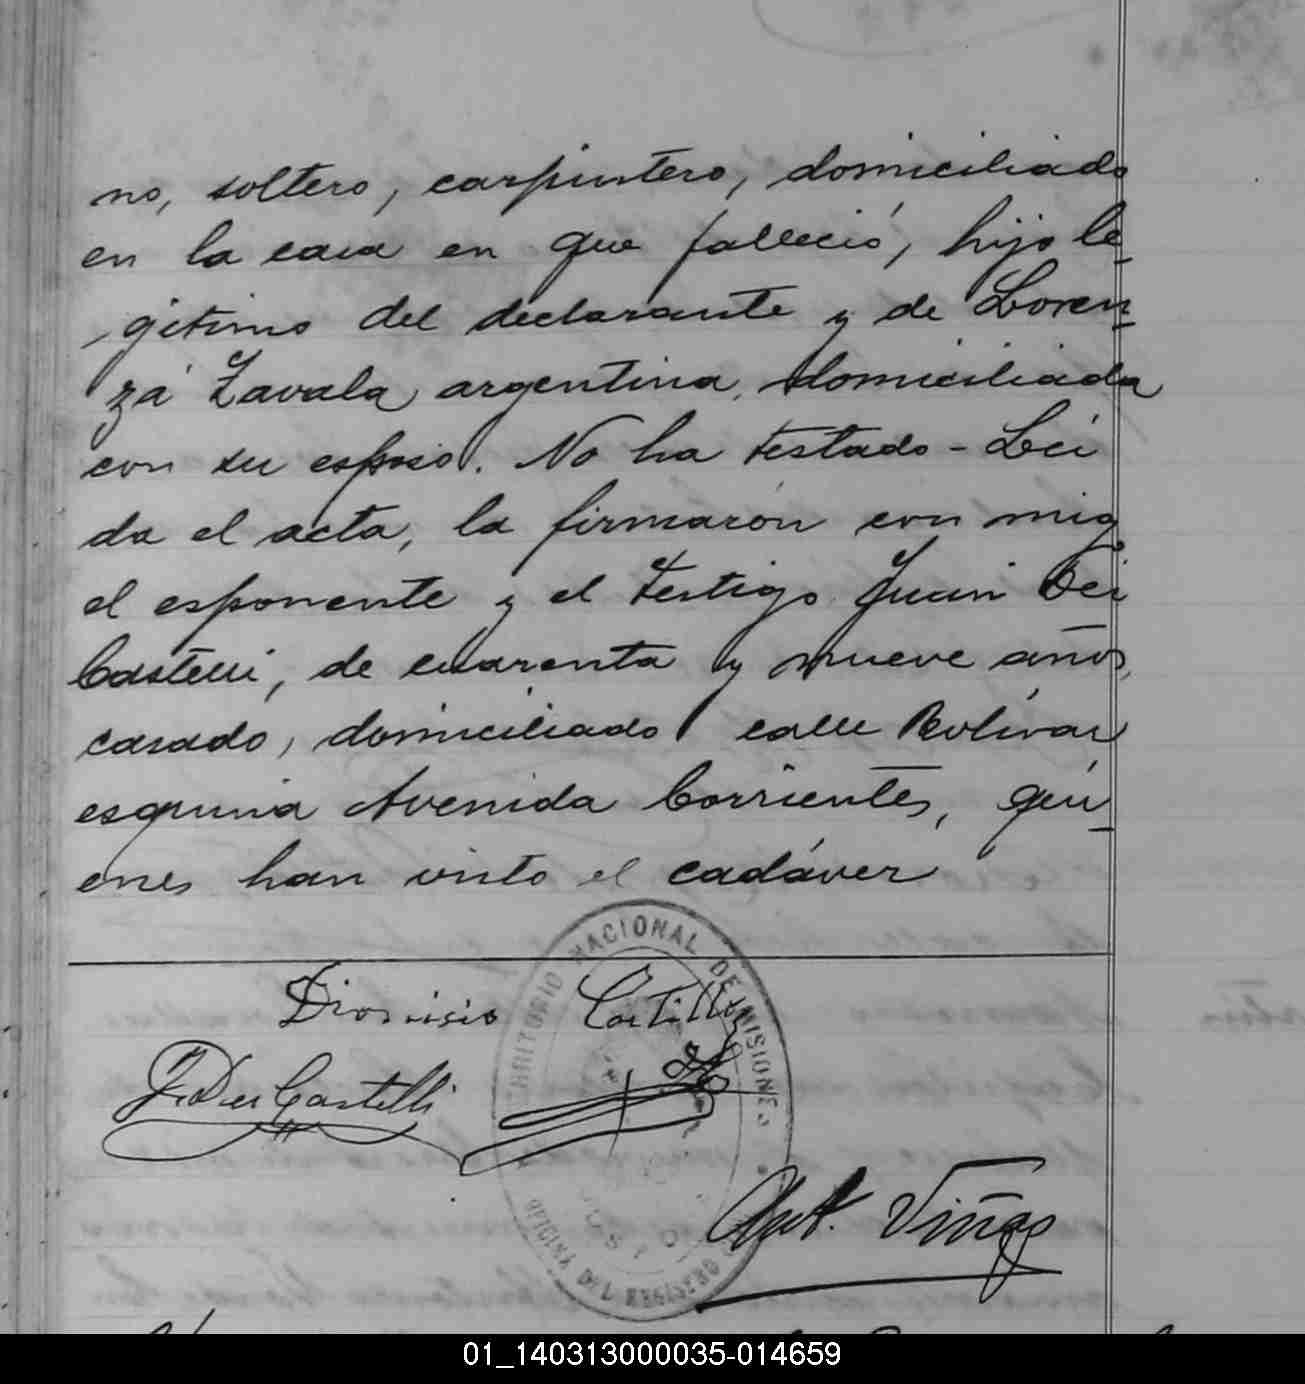 no, soltero, carpintero, domiciliado
en la casa en que falleció, hijo le-
gitimo del declarante y de Loren-
za Zavala argentina, domiciliada
con su esposo. No ha testado - Lei
da el acta, la firmaron con migo
el esponente y el testigo Juan Dei
Castelli, de cuarenta y nueve años,
casado, domiciliado calle Bolívar
esquina Avenida Corrientes, qui-
enes han visto el cadáver
TERRITORIO NACIONAL DE MISIONES
Dionisio Castillo
J. Dei Castelli
Ant. Viñas
OFICINA DEL REGISTRO
01_140313000035-014659